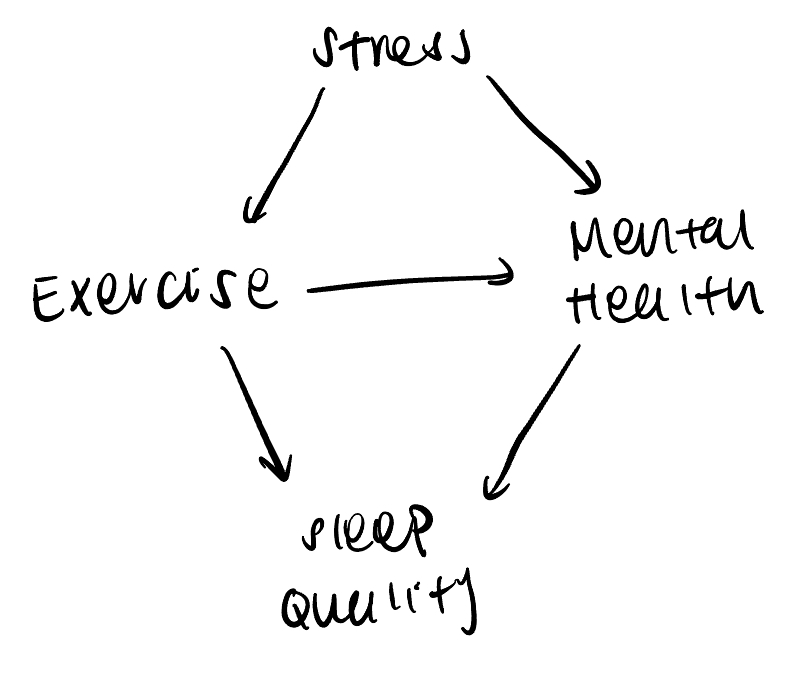 Stress
Exercise
Mental
Health
Sleep
Quality